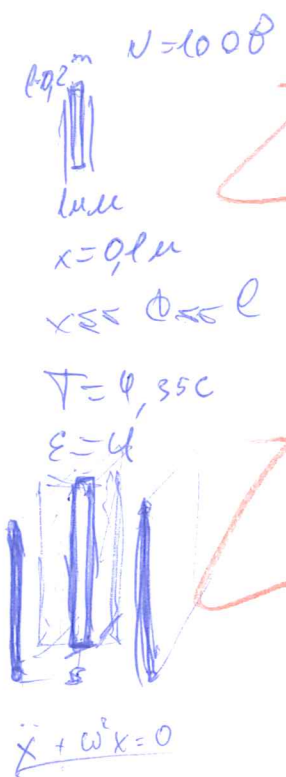 N=100В
l=0,2 m
1мм
x=0,1м
x ≤≤ ф ≤≤ l
T=4,35с
ε=4
ẍ + ω²x=0